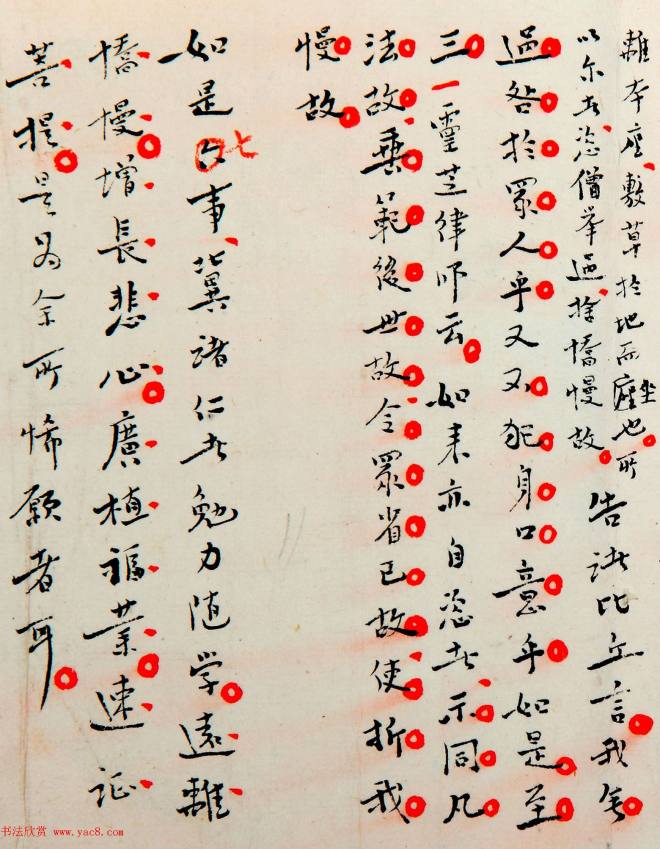 離本座敷草於地而座坐也所
以尔者恣僧舉過捨憍慢故
告諸比丘言我無
過咎於眾人乎又不犯身口意乎如是至
三一靈芝律师云如来亦自恣者示同凡
法故垂範後世故令眾省已故使折我
慢故
如是七事冀諸仁者勉力随学遠離
憍慢增長悲心廣植福業速证
菩提是为余所悕願者耳
书法欣赏 www.yac8.com